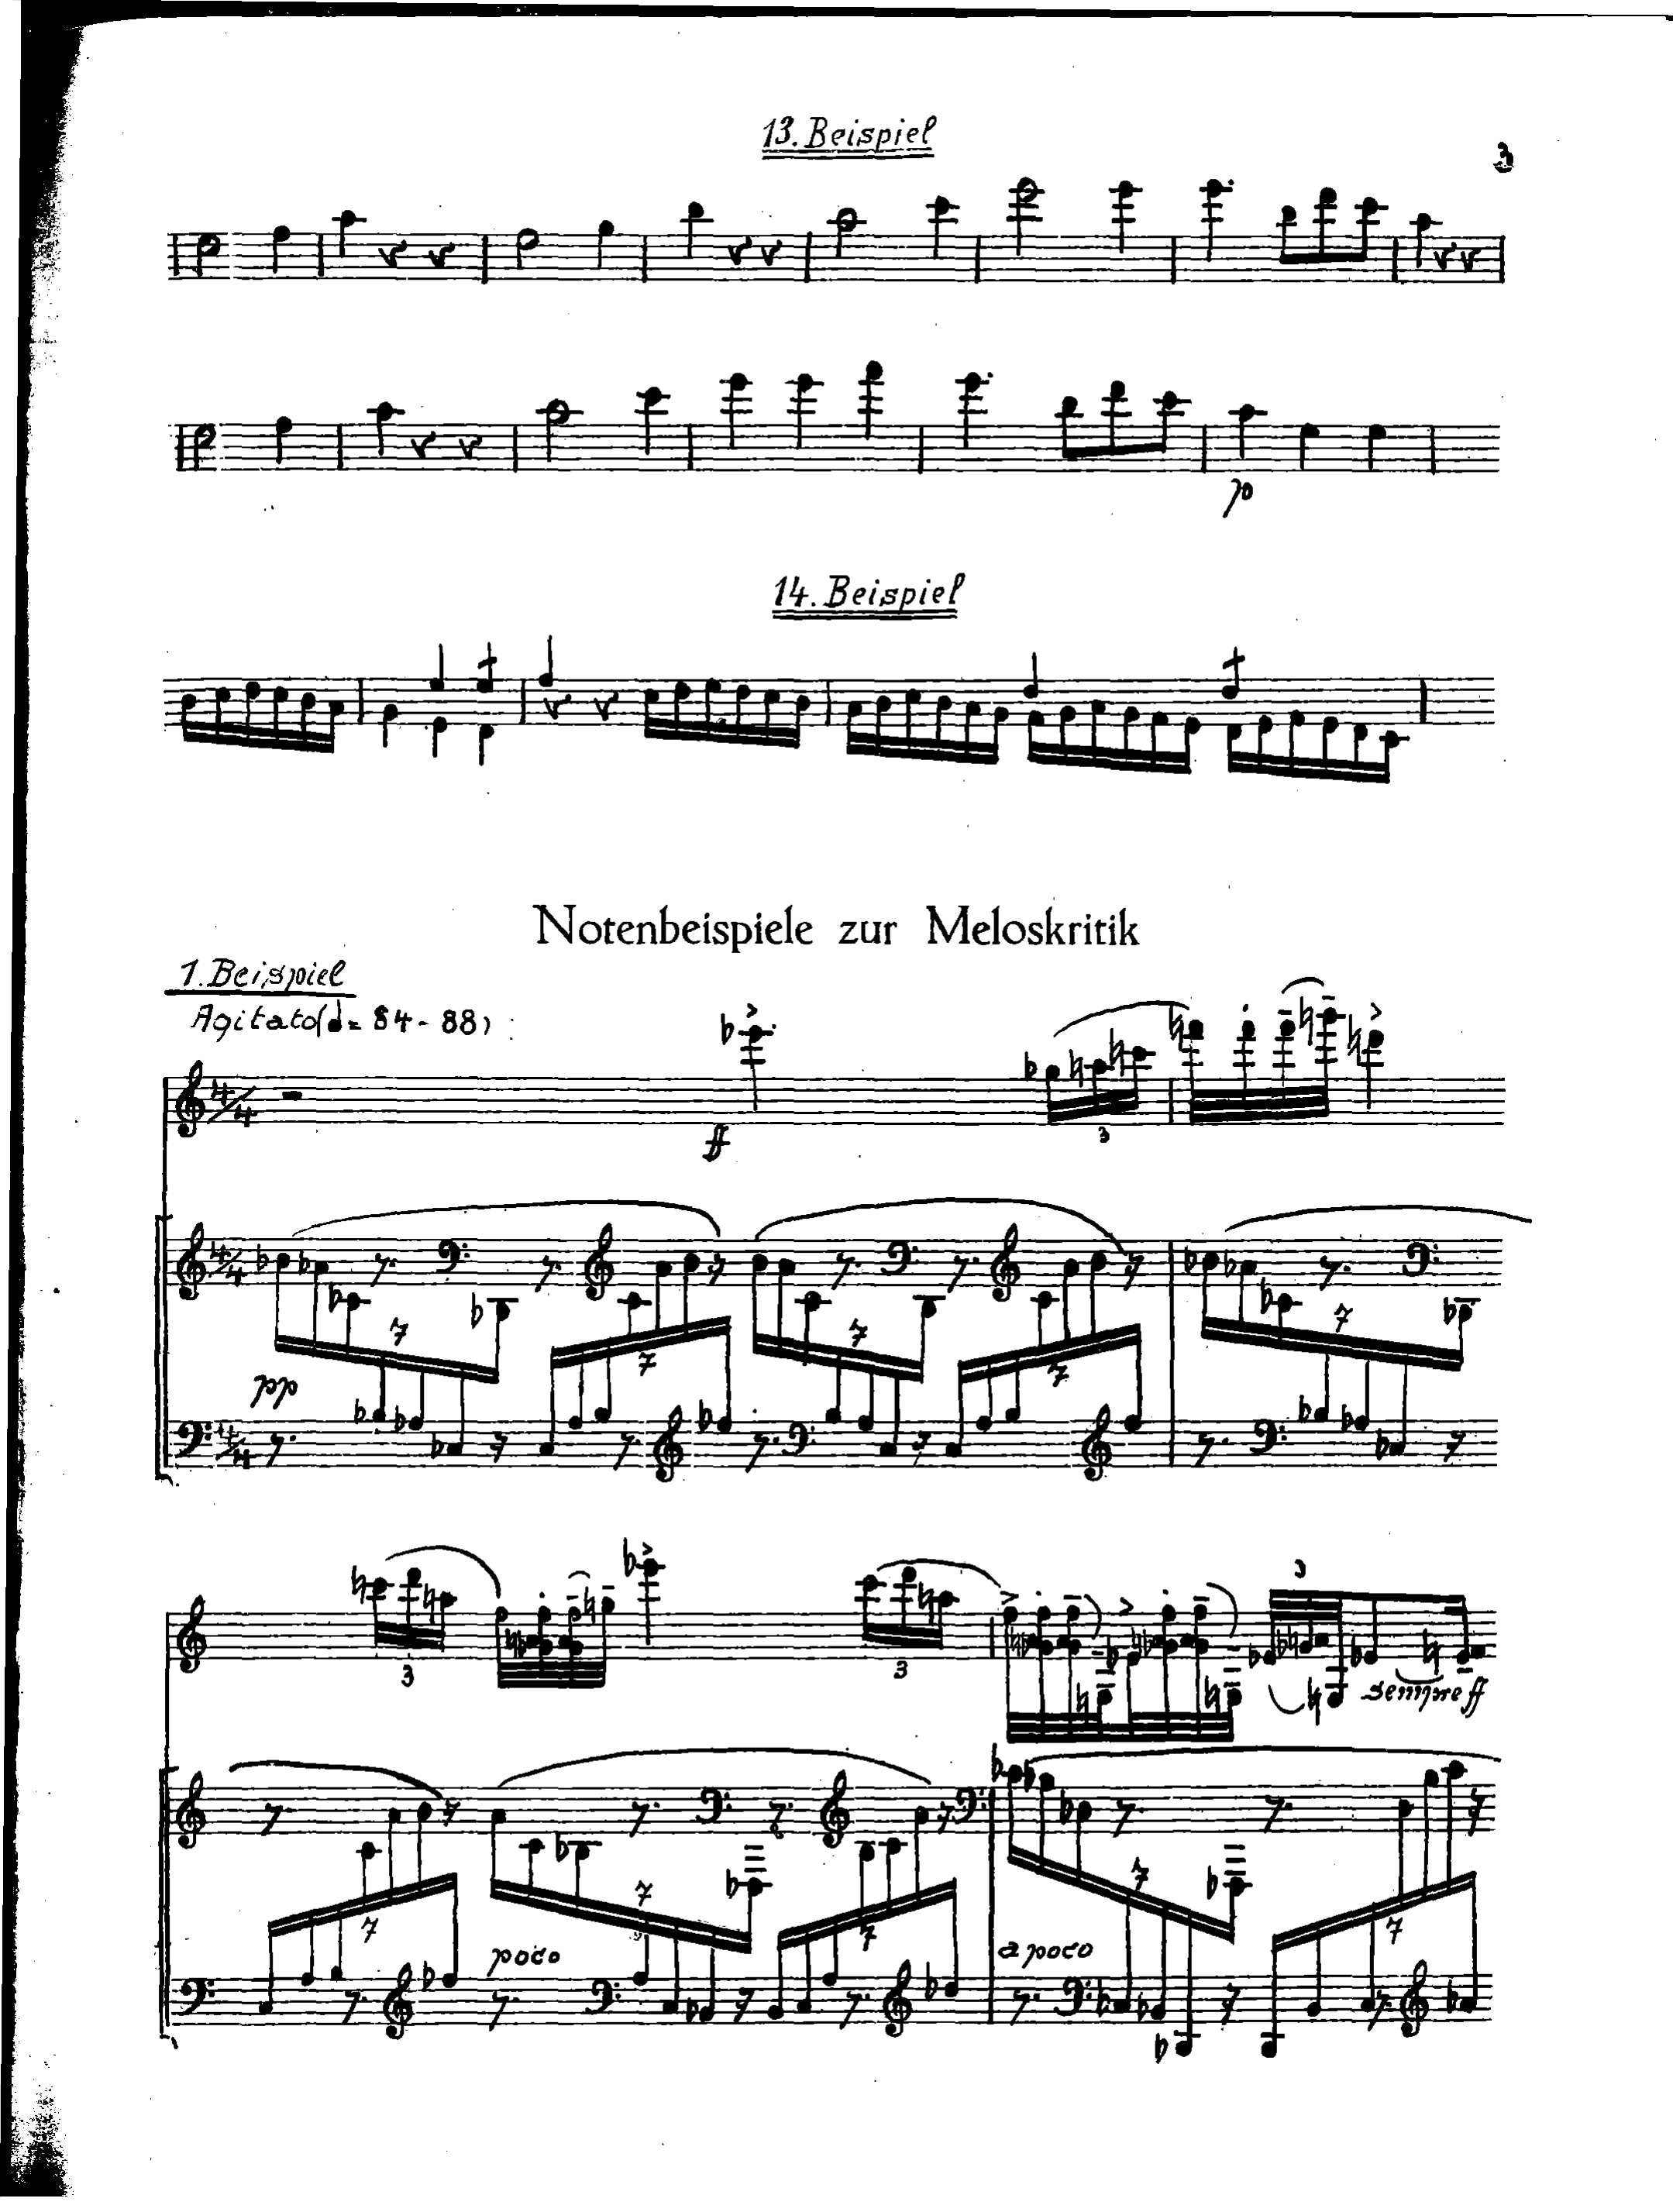 13. Beispiel
3
p
14. Beispiel
Notenbeispiele zur Meloskritik
1. Beispiel
Agitato (d = 84 - 88)
4/4
ff
3
4/4
7 7 7 7 7
pp
4/4
3 3 3
sempre ff
7 7 7 7 7
poco a poco